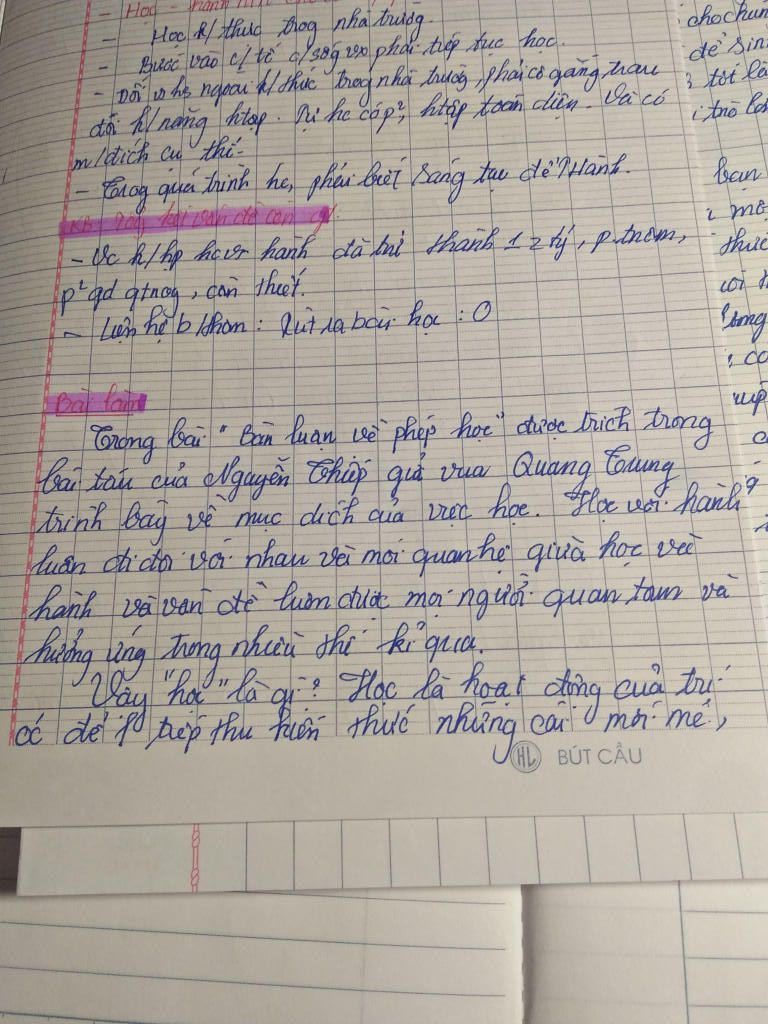 - Học - hành
- Học k/thức trog nhà trường.
- Bước vào c/tế c/sog vẫn phải tiếp tục học.
- Đối vs hs ngoài k/thức trog nhà trường, phải cố gắng trau
dồi k/năng htập. Tự hc có p², htập toàn diện. Và có
m/đích cụ thể.
- Trog quá trình hc, phải biết sáng tạo để
KB:
- Vc k/hp hc vs hành đã trở thành 1
p² gd qtrog, cần thiết.
- Liên hệ b/thân: Rút ra bài học: O
Bài làm
Trong bài "Bàn luận về phép học" được trích trong
bài tấu của Nguyễn Thiếp gửi vua Quang Trung
trình bày về mục đích của việc học. Học với hành
luôn đi đôi với nhau và mối quan hệ giữa học và
hành và vấn đề luôn được mọi người quan tâm và
hưởng ứng trong nhiều thế kỉ qua.
Vậy "học" là gì? Học là hoạt động của trí
óc để tiếp thu kiến thức những cái mới mẻ,
HL BÚT CÂU
để sin
bạn